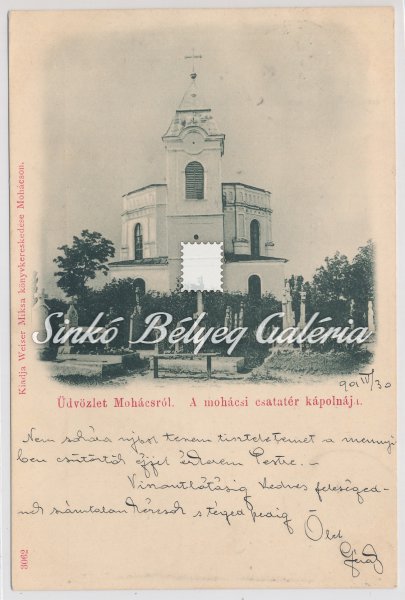 Kiadja Weiser Miksa könyvkereskedése Mohácson.
Sinkó Bélyeg Galéria
Üdvözlet Mohácsról. A mohácsi csatatér kápolnája.
901 IV/30
Nem sokára ujból teszem tiszteletemet a mennyi-
ben csütörtök éjjel érkezem Pestre. –
Viszontlátásig kedves feleséged-
nek számtalan kézcsók s téged pedig
Ölel
3062